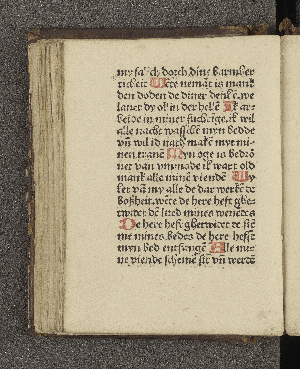 my salich dorch dine barmher
ticheit Wete nemāt is mank
den doden de diner denkē. we
lauet dy ok in der hellē Ik ar-
beide in miner suchtige. ik wil
alle nacht wasschē myn bedde
vn̄ wil id nach makē myt mi-
nen tranē Myn oge is bedro
uet van vnmode ik wart old
mank alle minē viende Wy
ket vā my alle de dar werkē de
boßheit. wēte de here heft ghe
twidet dē lued mines wenēdes
De here heft ghetwidet de stē
me mines bedes de here hefft
myn bed entfangē Alle mi-
ne viende schemē sik vn̄ werdē